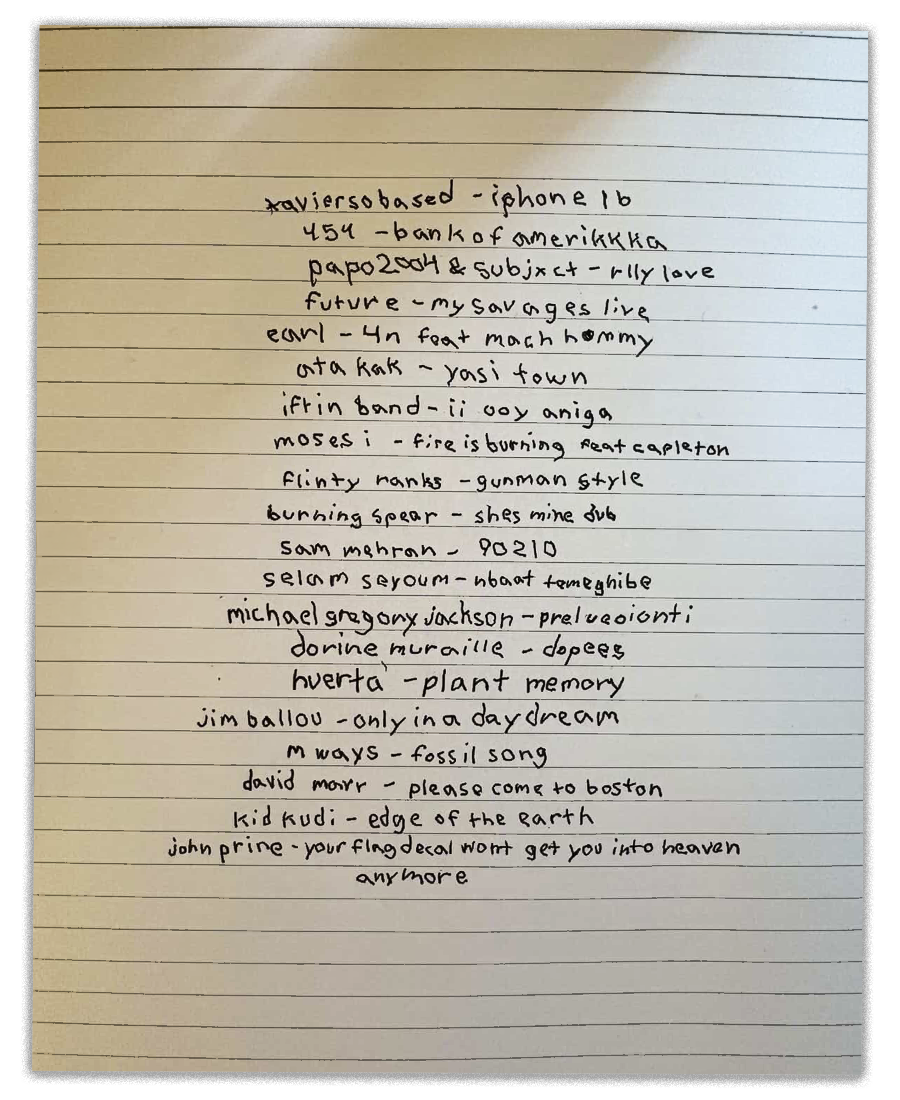 xaviersobased - iphone 16
454 - bank of amerikkka
papo2004 & subjxct - rlly love
future - my savages live
earl - 4n feat mach hommy
ata kak - yasi town
iftin band - ii ooy aniga
moses i - fire is burning feat capleton
flinty ranks - gunman style
burning spear - shes mine dub
sam mehran - 90210
selam seyoum - nbaat temeghibe
michael gregory jackson - prelueoionti
dorine muraille - dopees
huerta - plant memory
jim ballou - only in a daydream
m ways - fossil song
david marr - please come to boston
kid kudi - edge of the earth
john prine - your flag decal wont get you into heaven
anymore